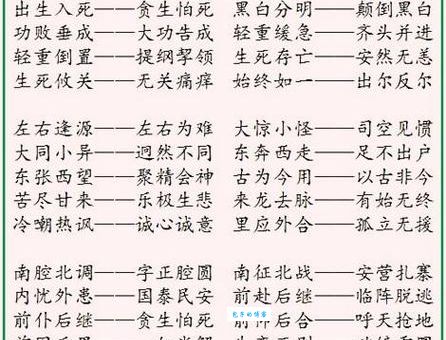 出生入死——贪生怕死 黑白分明——颠倒黑白
功败垂成——大功告成 轻重缓急——齐头并进
轻重倒置——提纲挈领 生死存亡——安然无恙
生死攸关——无关痛痒 始终如一——出尔反尔
左右逢源——左右为难 大惊小怪——司空见惯
大同小异——迥然不同 东奔西走——足不出户
东张西望——聚精会神 古为今用——以古非今
苦尽甘来——乐极生悲 来龙去脉——有始无终
冷嘲热讽——诚心诚意 里应外合——孤立无援
南腔北调——字正腔圆 南征北战——安营扎寨
内忧外患——国泰民安 前赴后继——临阵脱逃
前仆后继——贪生怕死 前仰后合——呼天抢地